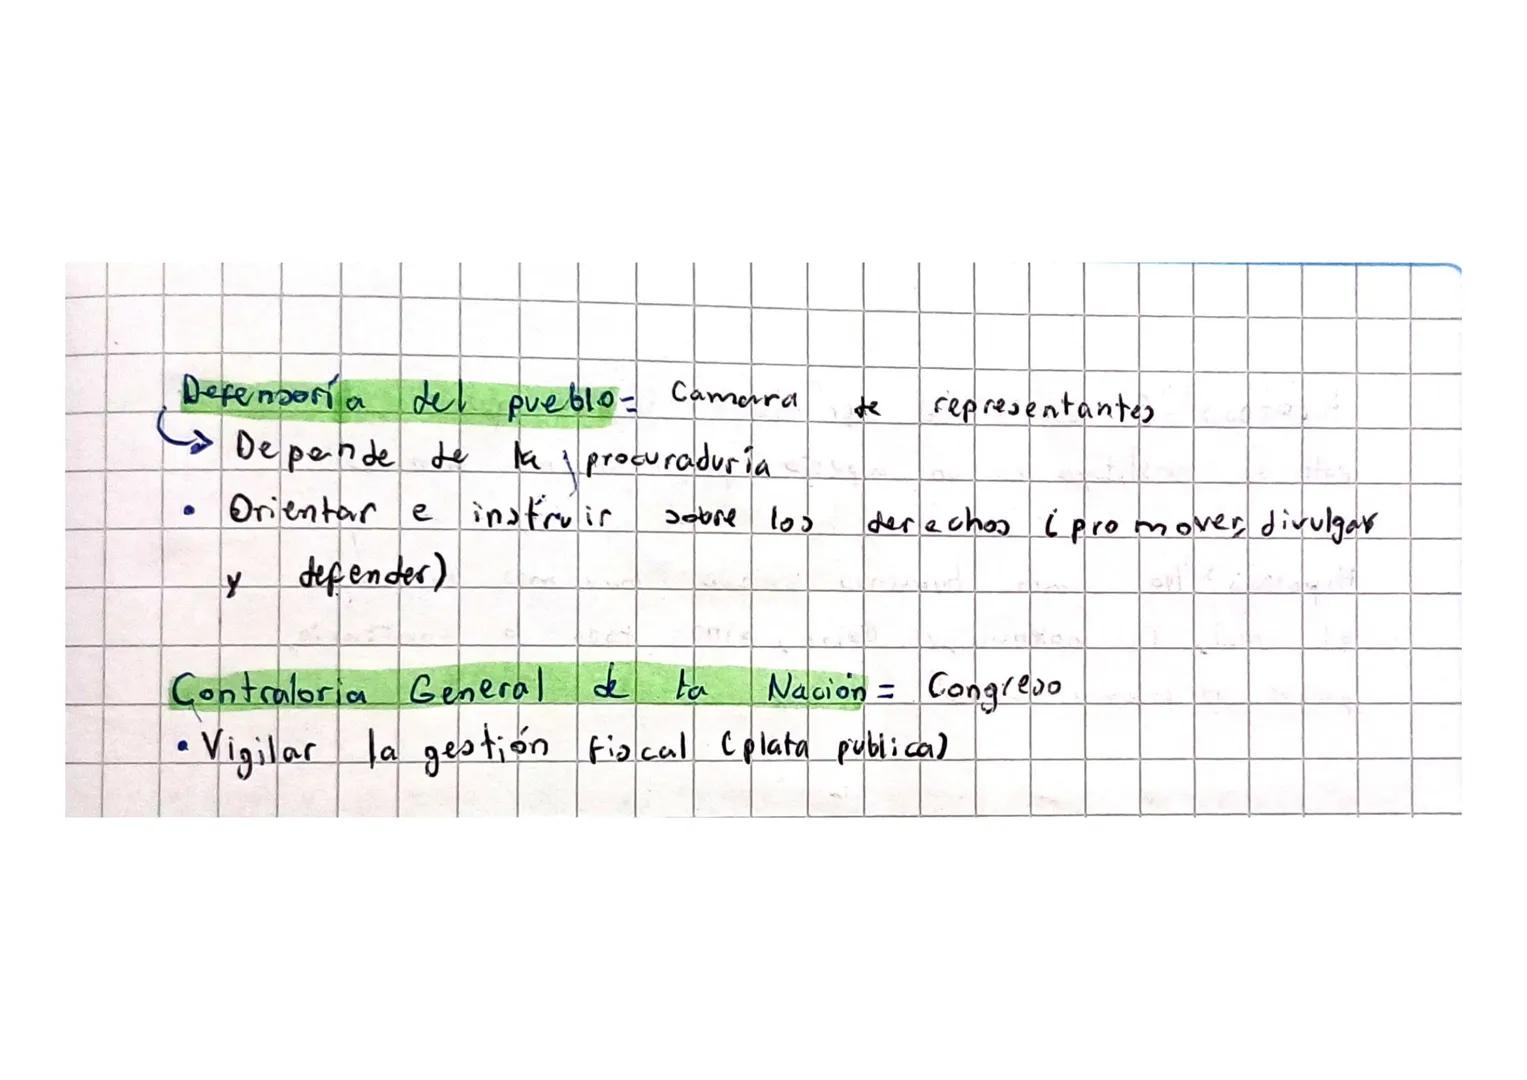 Defensoría del pueblo = Camara de representantes
↳ Depende de la procuraduría
• Orientar e instruir sobre los derechos (promover, divulgar
y defender)
Contraloria General de la Nación = Congreso
• Vigilar la gestión fiscal (plata pública)